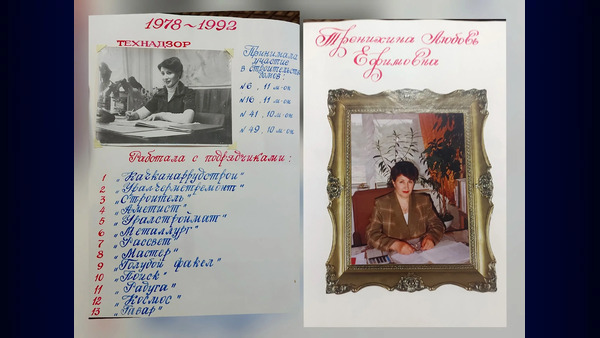 1978~1992
ТЕХНАДЗОР
Принимала
участие
в строительстве
домов:
№6, 11 м-он
№16, 11 м-он
№41, 10 м-он
№49, 10 м-он
Работала с подрядчиками:
1 „Качканаррудстрой"
2 „Уралчерметремонт"
3 „Строитель"
4 „Аметист"
5 „Уралстроймат"
6 „Металлург"
7 „Рассвет"
8 „Мастер"
9 „Голубой факел"
10 „Поиск"
11 „Радуга"
12 „Космос"
13
Тронихина Любовь
Ефимовна